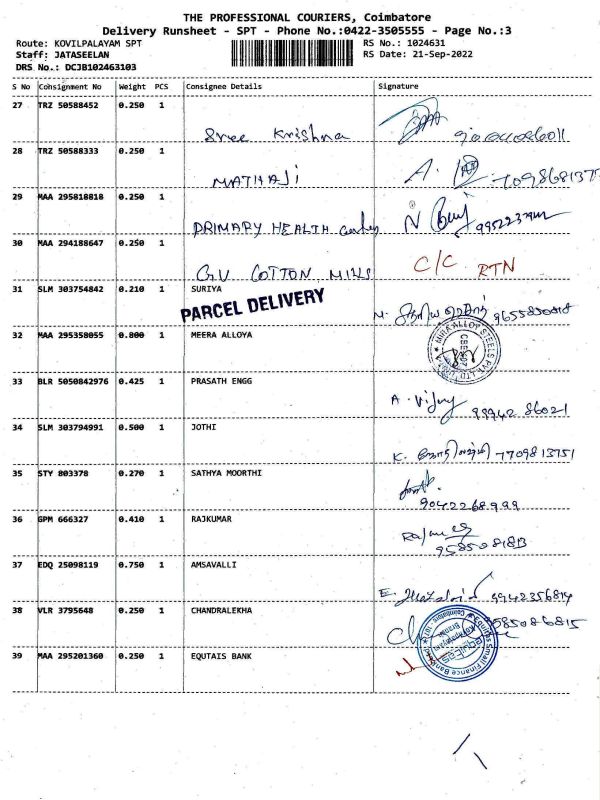 THE PROFESSIONAL COURIERS, Coimbatore
Delivery Runsheet - SPT - Phone No.:0422-3505555 - Page No.:3
Route: KOVILPALAYAM SPT
RS No.: 1024631
Staff: JATASEELAN
RS Date: 21-Sep-2022
DRS No.: DCJB102463103
S No Consignment No Weight PCS Consignee Details Signature
27 TRZ 50588452 0.250 1
Sree Krishna
28 TRZ 50588333 0.250 1
MATHAJI
29 MAA 295818818 0.250 1
PRIMARY HEALTH
30 MAA 294188647 0.250 1
G.V COTTON MILLS C/C RTN
31 SLM 303754842 0.210 1 SURIYA
PARCEL DELIVERY
32 MAA 295358055 0.800 1 MEERA ALLOYA
33 BLR 5050842976 0.425 1 PRASATH ENGG
A. Vijay 99942 86021
34 SLM 303794991 0.500 1 JOTHI
K. 7709813751
35 STY 803378 0.270 1 SATHYA MOORTHI
9042268999
36 GPM 666327 0.410 1 RAJKUMAR
37 EDQ 25098119 0.750 1 AMSAVALLI
E. 9942356814
38 VLR 3795648 0.250 1 CHANDRALEKHA
39 MAA 295201360 0.250 1 EQUTAIS BANK